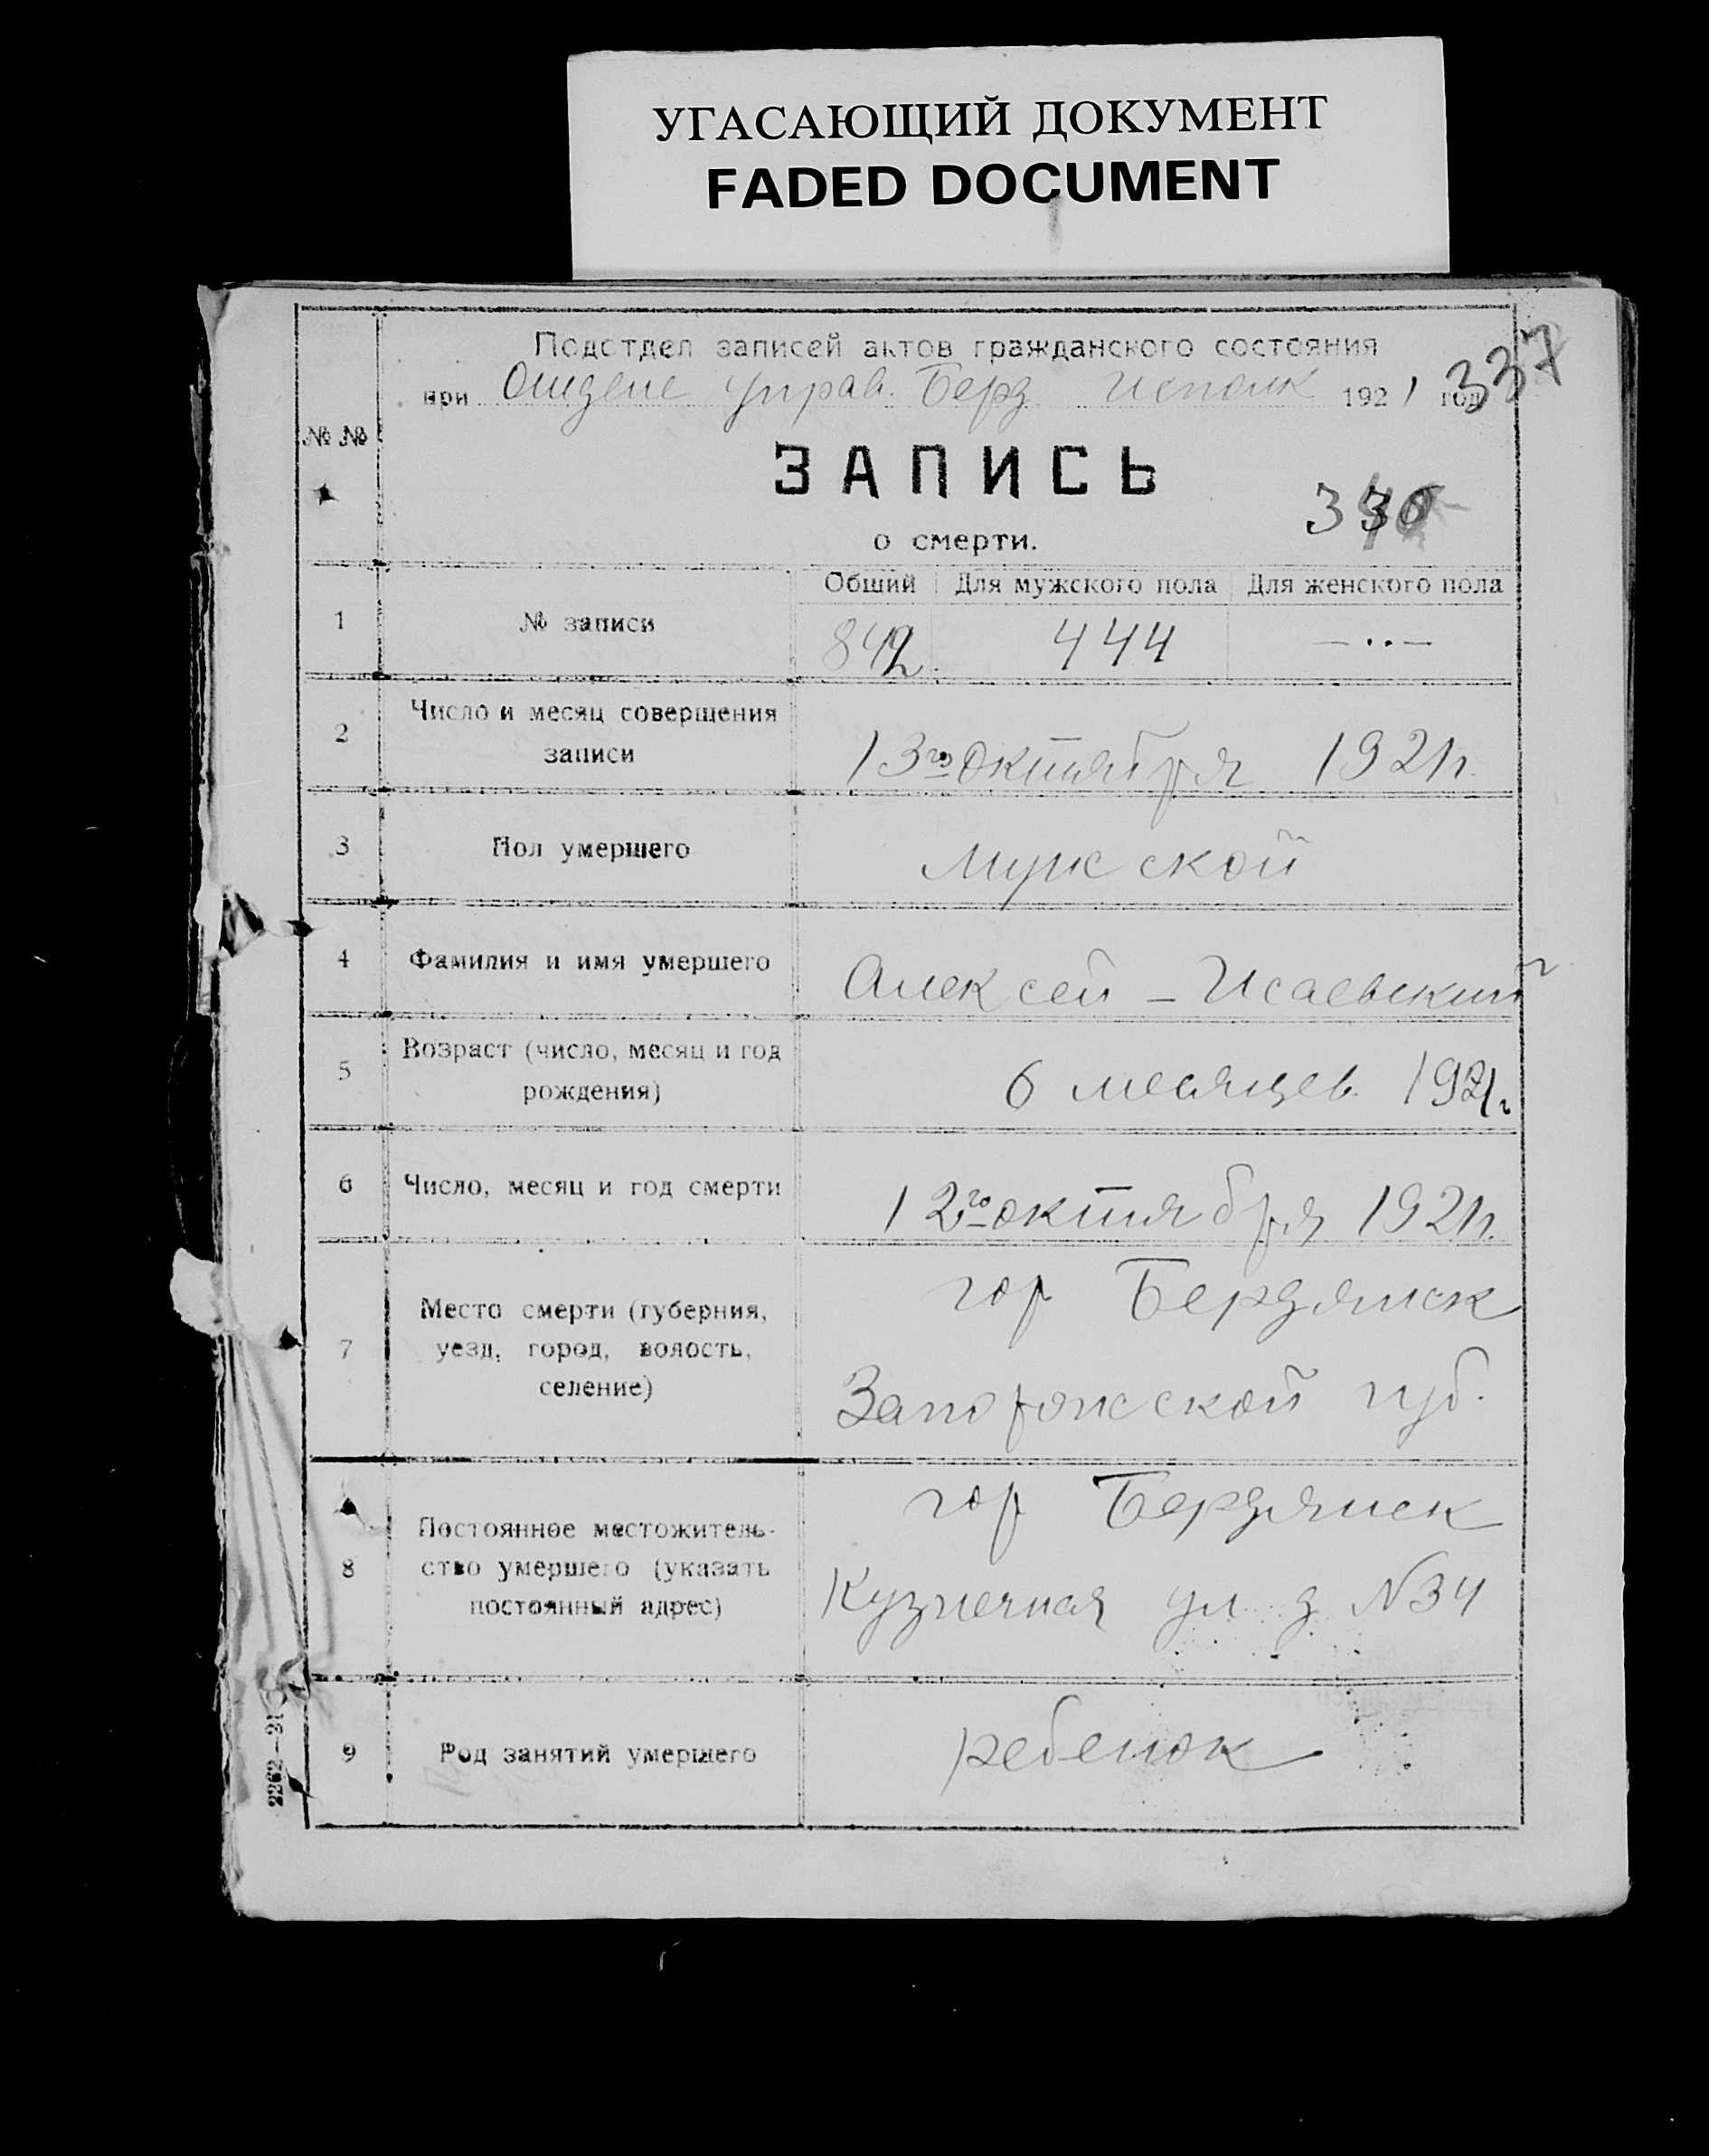 УГАСАЮЩИЙ ДОКУМЕНТ
FADED DOCUMENT
337
Подотдел записей актов гражданского состояния
при Отделе управ. Берд Исполк 1921 год
№ №
ЗАПИСЬ
о смерти.
Общий Для мужского пола Для женского пола
1 № записи 842 444 — · · —
2 Число и месяц совершения
записи 13го октября 1921г.
3 Пол умершего мужской
4 Фамилия и имя умершего Алексей – Исаевский
5 Возраст (число, месяц и год
рождения) 6 месяцев 1921г
6 Число, месяц и год смерти 12го октября 1921г.
7 Место смерти (губерния,
уезд, город, волость,
селение)
гор Бердянск
Запорожской губ.
8 Постоянное местожитель-
ство умершего (указать
постоянный адрес)
гор Бердянск
Кузнечная ул д N34
9 Род занятий умершего ребенок
2262—21